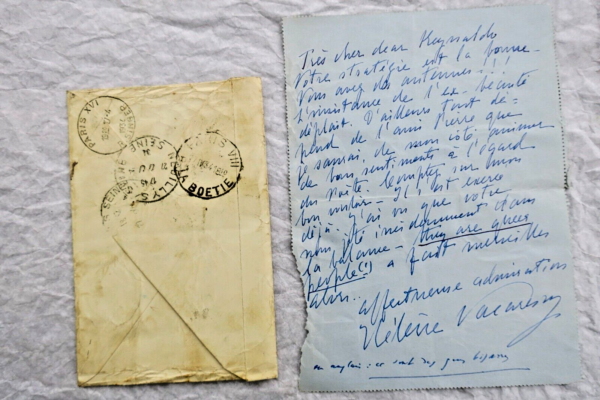 PARIS XVI
PARIS VIII
BOETIE
Très cher dear Reynaldo
Votre stratégie est la bonne
Vous avez des antennes!!!
L'insistance de l'ex-beauté
déplaît. D'ailleurs tout dé-
pend de l'ami Pierre que
je saurai, de mon côté, animer
de bons sentiments à l'égard
du poète. Comptez sur mon
bon vouloir. Il s'est exercé
déjà. J'ai vu que votre
nom, jeté incidemment dans
la balance - they are queer
people(!) a fait merveilles
alors..
affectueuse admiration
Hélène Vacaresco